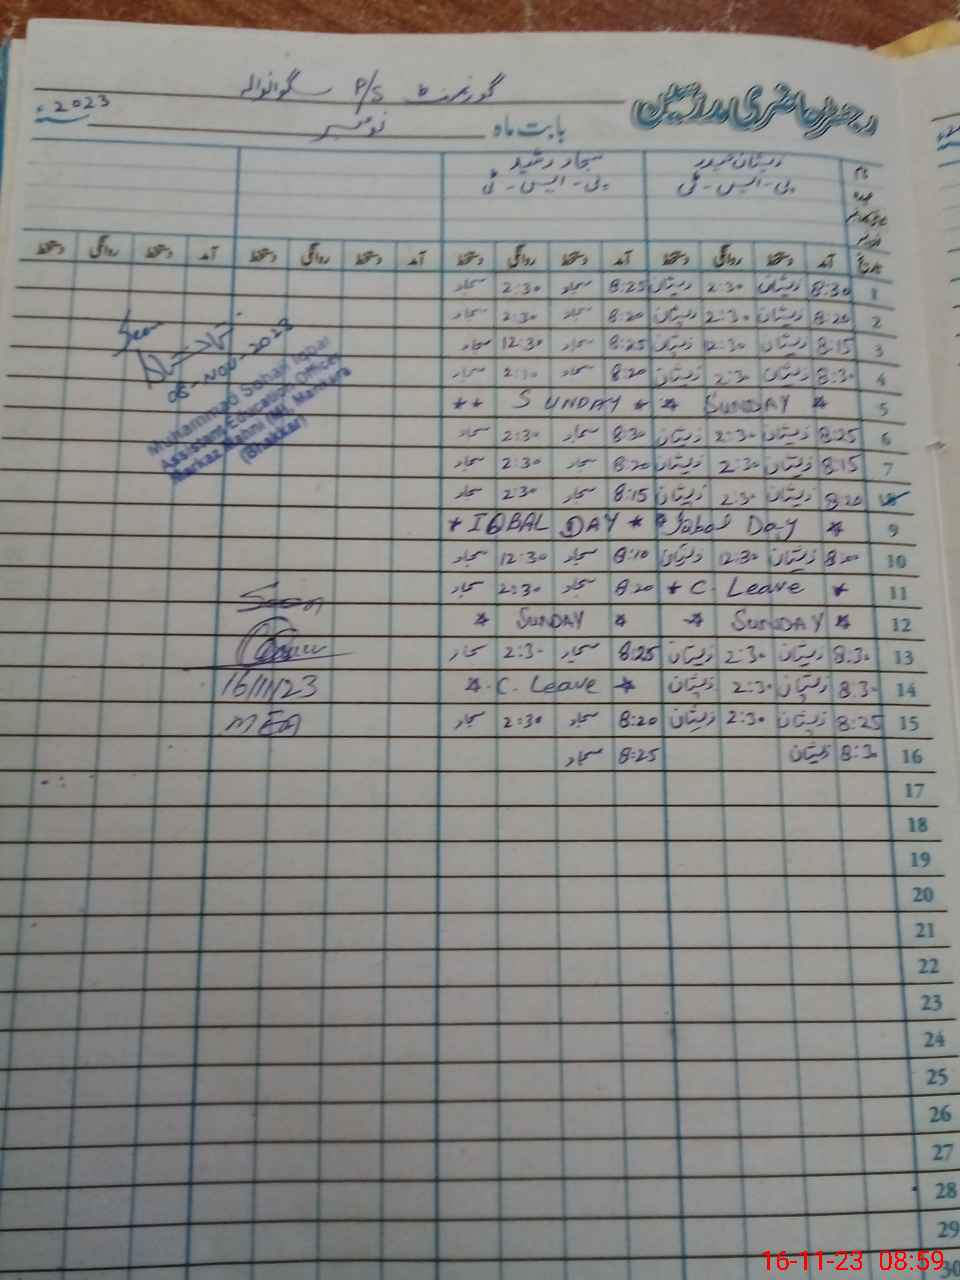 رجسٹر حاضری مدرسین
گورنمنٹ P/S سگوانوالہ
بابت ماہ نومبر 2023ء
نام ذیشان حیدر سجاد رشید
عہدہ پی-ایس-ٹی پی-ایس-ٹی
تاریخ آمد دستخط روانگی دستخط آمد دستخط روانگی دستخط آمد دستخط روانگی دستخط آمد دستخط روانگی دستخط
1 8:30 ذیشان 2:30 ذیشان 8:25 سجاد 2:30 سجاد
2 8:20 ذیشان 2:30 ذیشان 8:20 سجاد 2:30 سجاد
3 8:15 ذیشان 12:30 ذیشان 8:25 سجاد 12:30 سجاد
4 8:30 ذیشان 2:30 ذیشان 8:20 سجاد 2:30 سجاد
5 * SUNDAY * * SUNDAY **
6 8:25 ذیشان 2:30 ذیشان 8:30 سجاد 2:30 سجاد
7 8:15 ذیشان 2:30 ذیشان 8:20 سجاد 2:30 سجاد
8:20 ذیشان 2:30 ذیشان 8:15 سجاد 2:30 سجاد
9 * Iqbal Day * * IQBAL DAY *
10 8:20 ذیشان 12:30 ذیشان 8:10 سجاد 12:30 سجاد
11 * C. Leave * 8:20 سجاد 2:30 سجاد
12 * SUNDAY * * SUNDAY *
13 8:30 ذیشان 2:30 ذیشان 8:25 سجاد 2:30 سجاد
14 8:30 ذیشان 2:30 ذیشان * C. Leave *
15 8:25 ذیشان 2:30 ذیشان 8:20 سجاد 2:30 سجاد
16 8:30 ذیشان 8:25 سجاد
17
18
19
20
21
22
23
24
25
26
27
28
29
30
Seen
08-NOV-2023
Muhammad Sohail Iqbal
Assistant Education Officer
Markaz Mahni (M), Mankera
(Bhakkar)
Seen
16/11/23
MEA
16-11-23 08:59